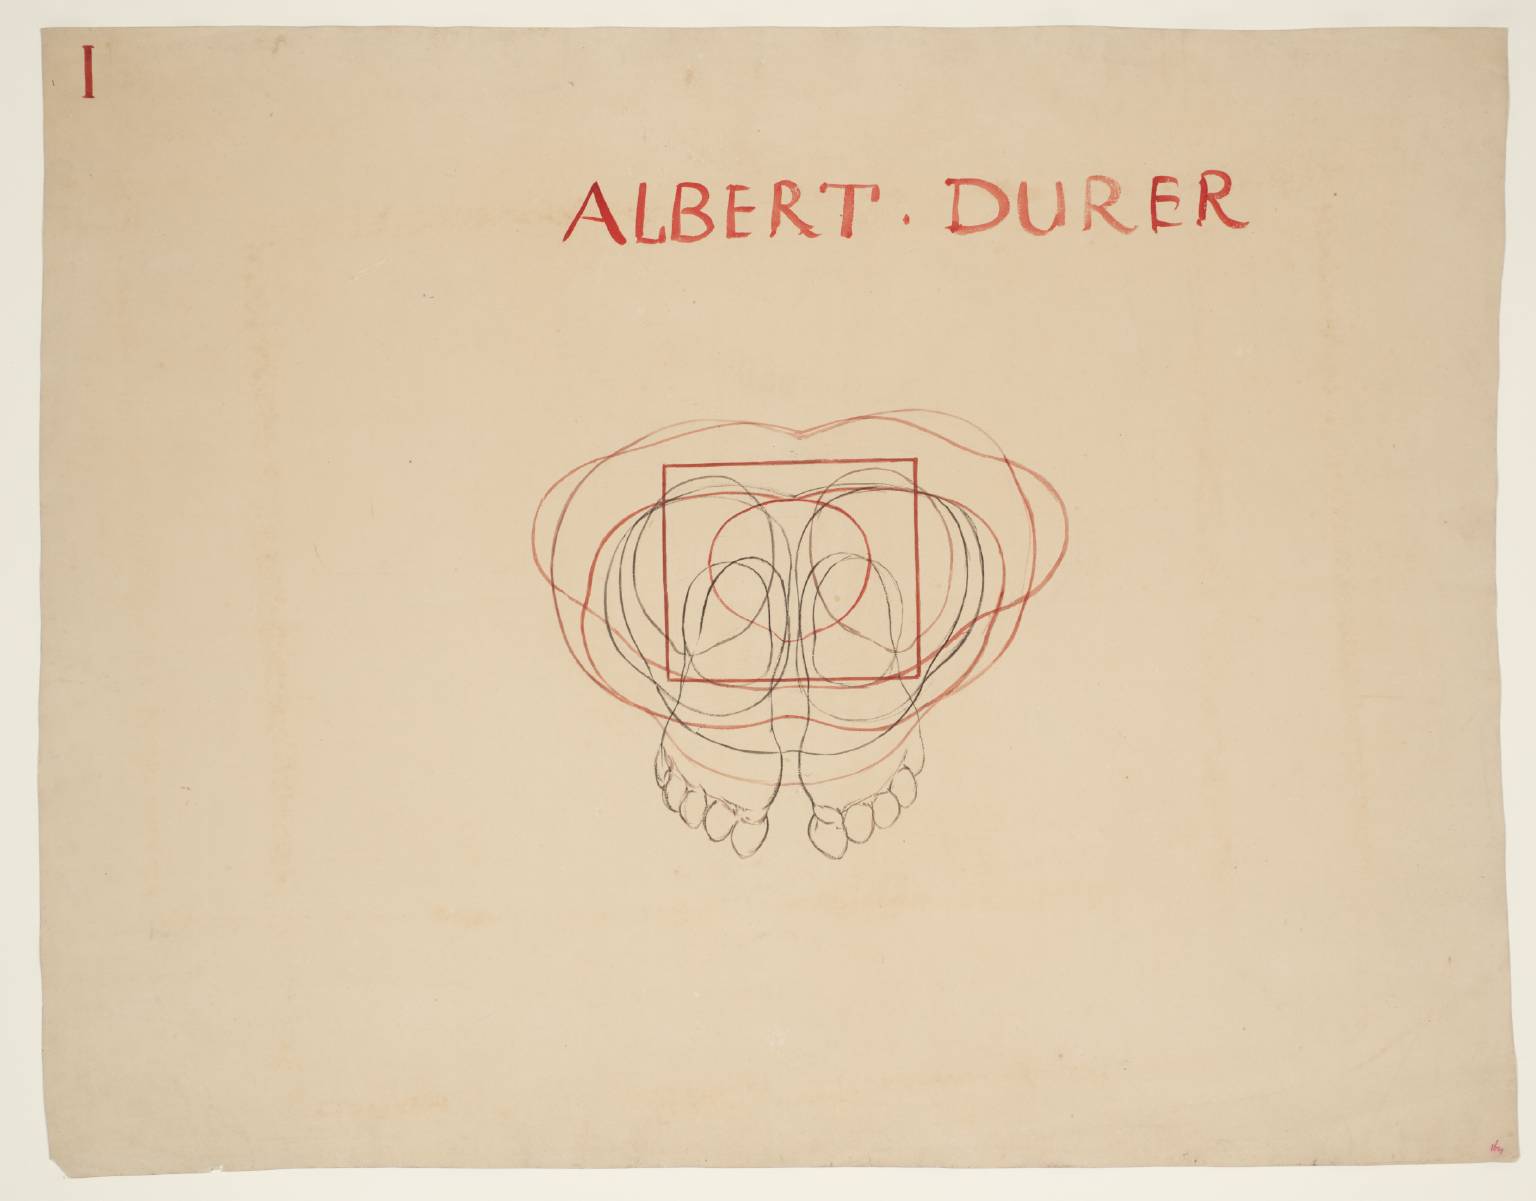 I
ALBERT · DURER